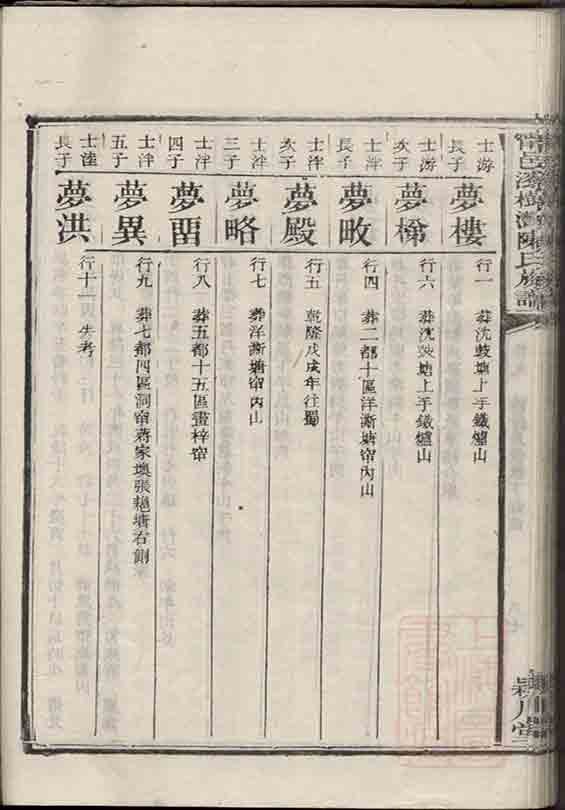 士游長子
夢樓
行一 葬沈鼓塘上手鐵爐山
士游次子
夢梯
行六 葬沈鼓塘上手鐵爐山
士泮長子
夢畋
行四 葬二都十區洋澌塘窑內山
士泮次子
夢殿
行五 乾隆戊戌年往蜀
士泮三子
夢略
行七 葬洋澌塘窑內山
士泮四子
夢畱
行八 葬五都十五區畫梓窑
士泮五子
夢異
行九 葬七都四區洞窑蔣家塽張艳塘右側
士滙長子
夢洪
行十一 失考
陳氏族譜
潁川堂